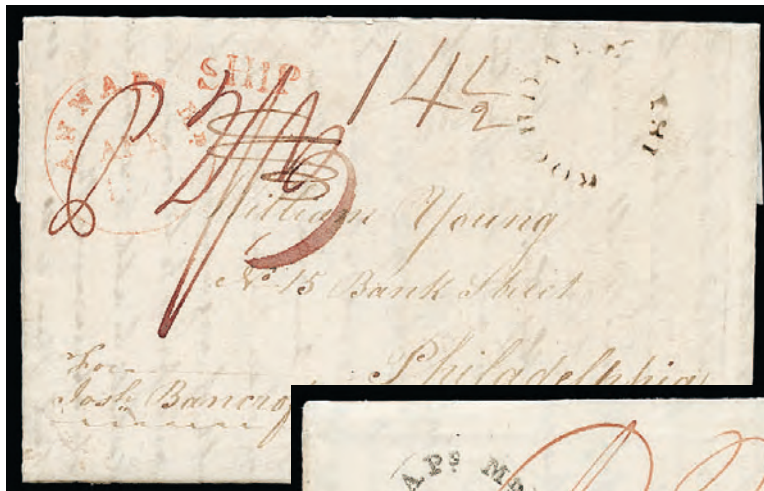 ANNAPs Md
APR
SHIP
14 1/2
ROCHDALE
William Young
No. 15 Bank Street
Philadelphia
For
Josh. Bancrof
APs Md